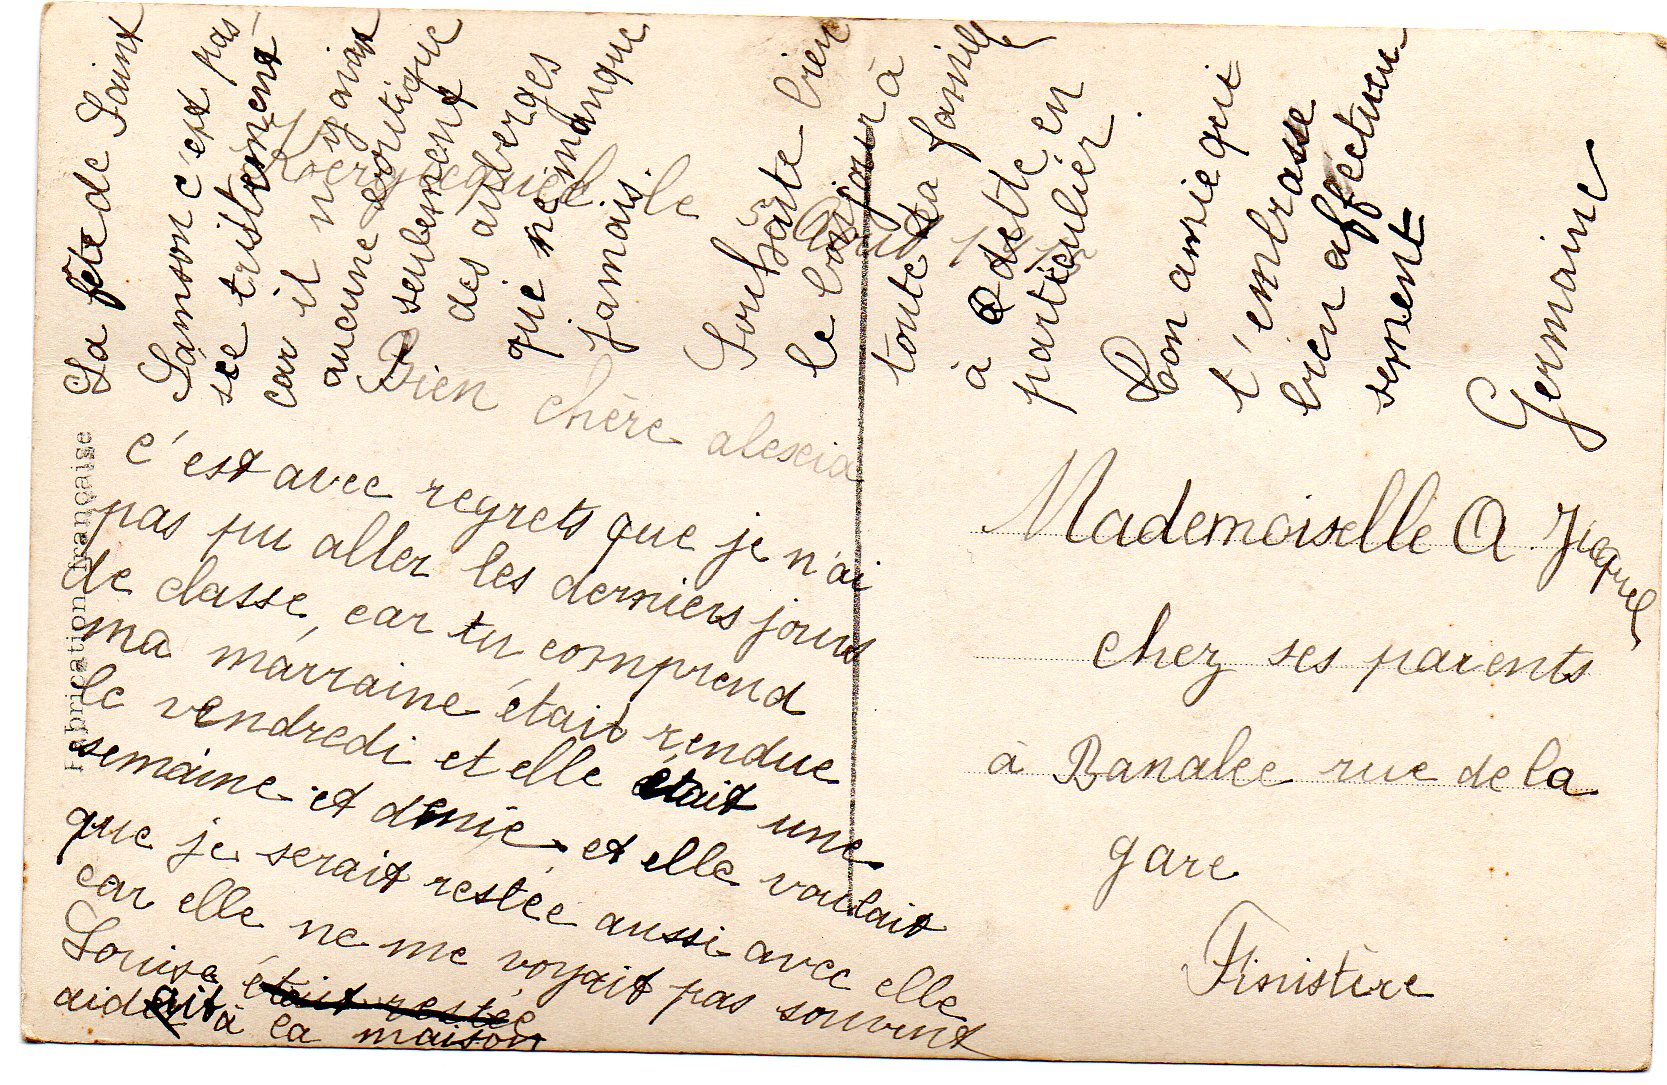 Kerjéquel. le
Août
Bien chère alexia
c'est avec regrets que je n'ai
pas pu aller les derniers jours
de classe, car tu comprend
ma marraine était rendue
le vendredi et elle était une
semaine et demie et elle voulait
que je serait restée aussi avec elle
car elle ne me voyait pas souvent
Louise était restée
aidait à la maison
La fête de Saint
Samson c'est pas
sée tristement
car il n'y avait
aucune boutique
seulement
des auberges
qui ne manque
jamais.
Souhaite bien
le bonjour à
toute ta famille
à Odette en
particulier.
Bon amie qui
t'embrasse
bien affectueu
sement
Germaine
Mademoiselle A Jiequel
chez ses parents
à Banalec rue de la
gare
Finistère
Fabrication française